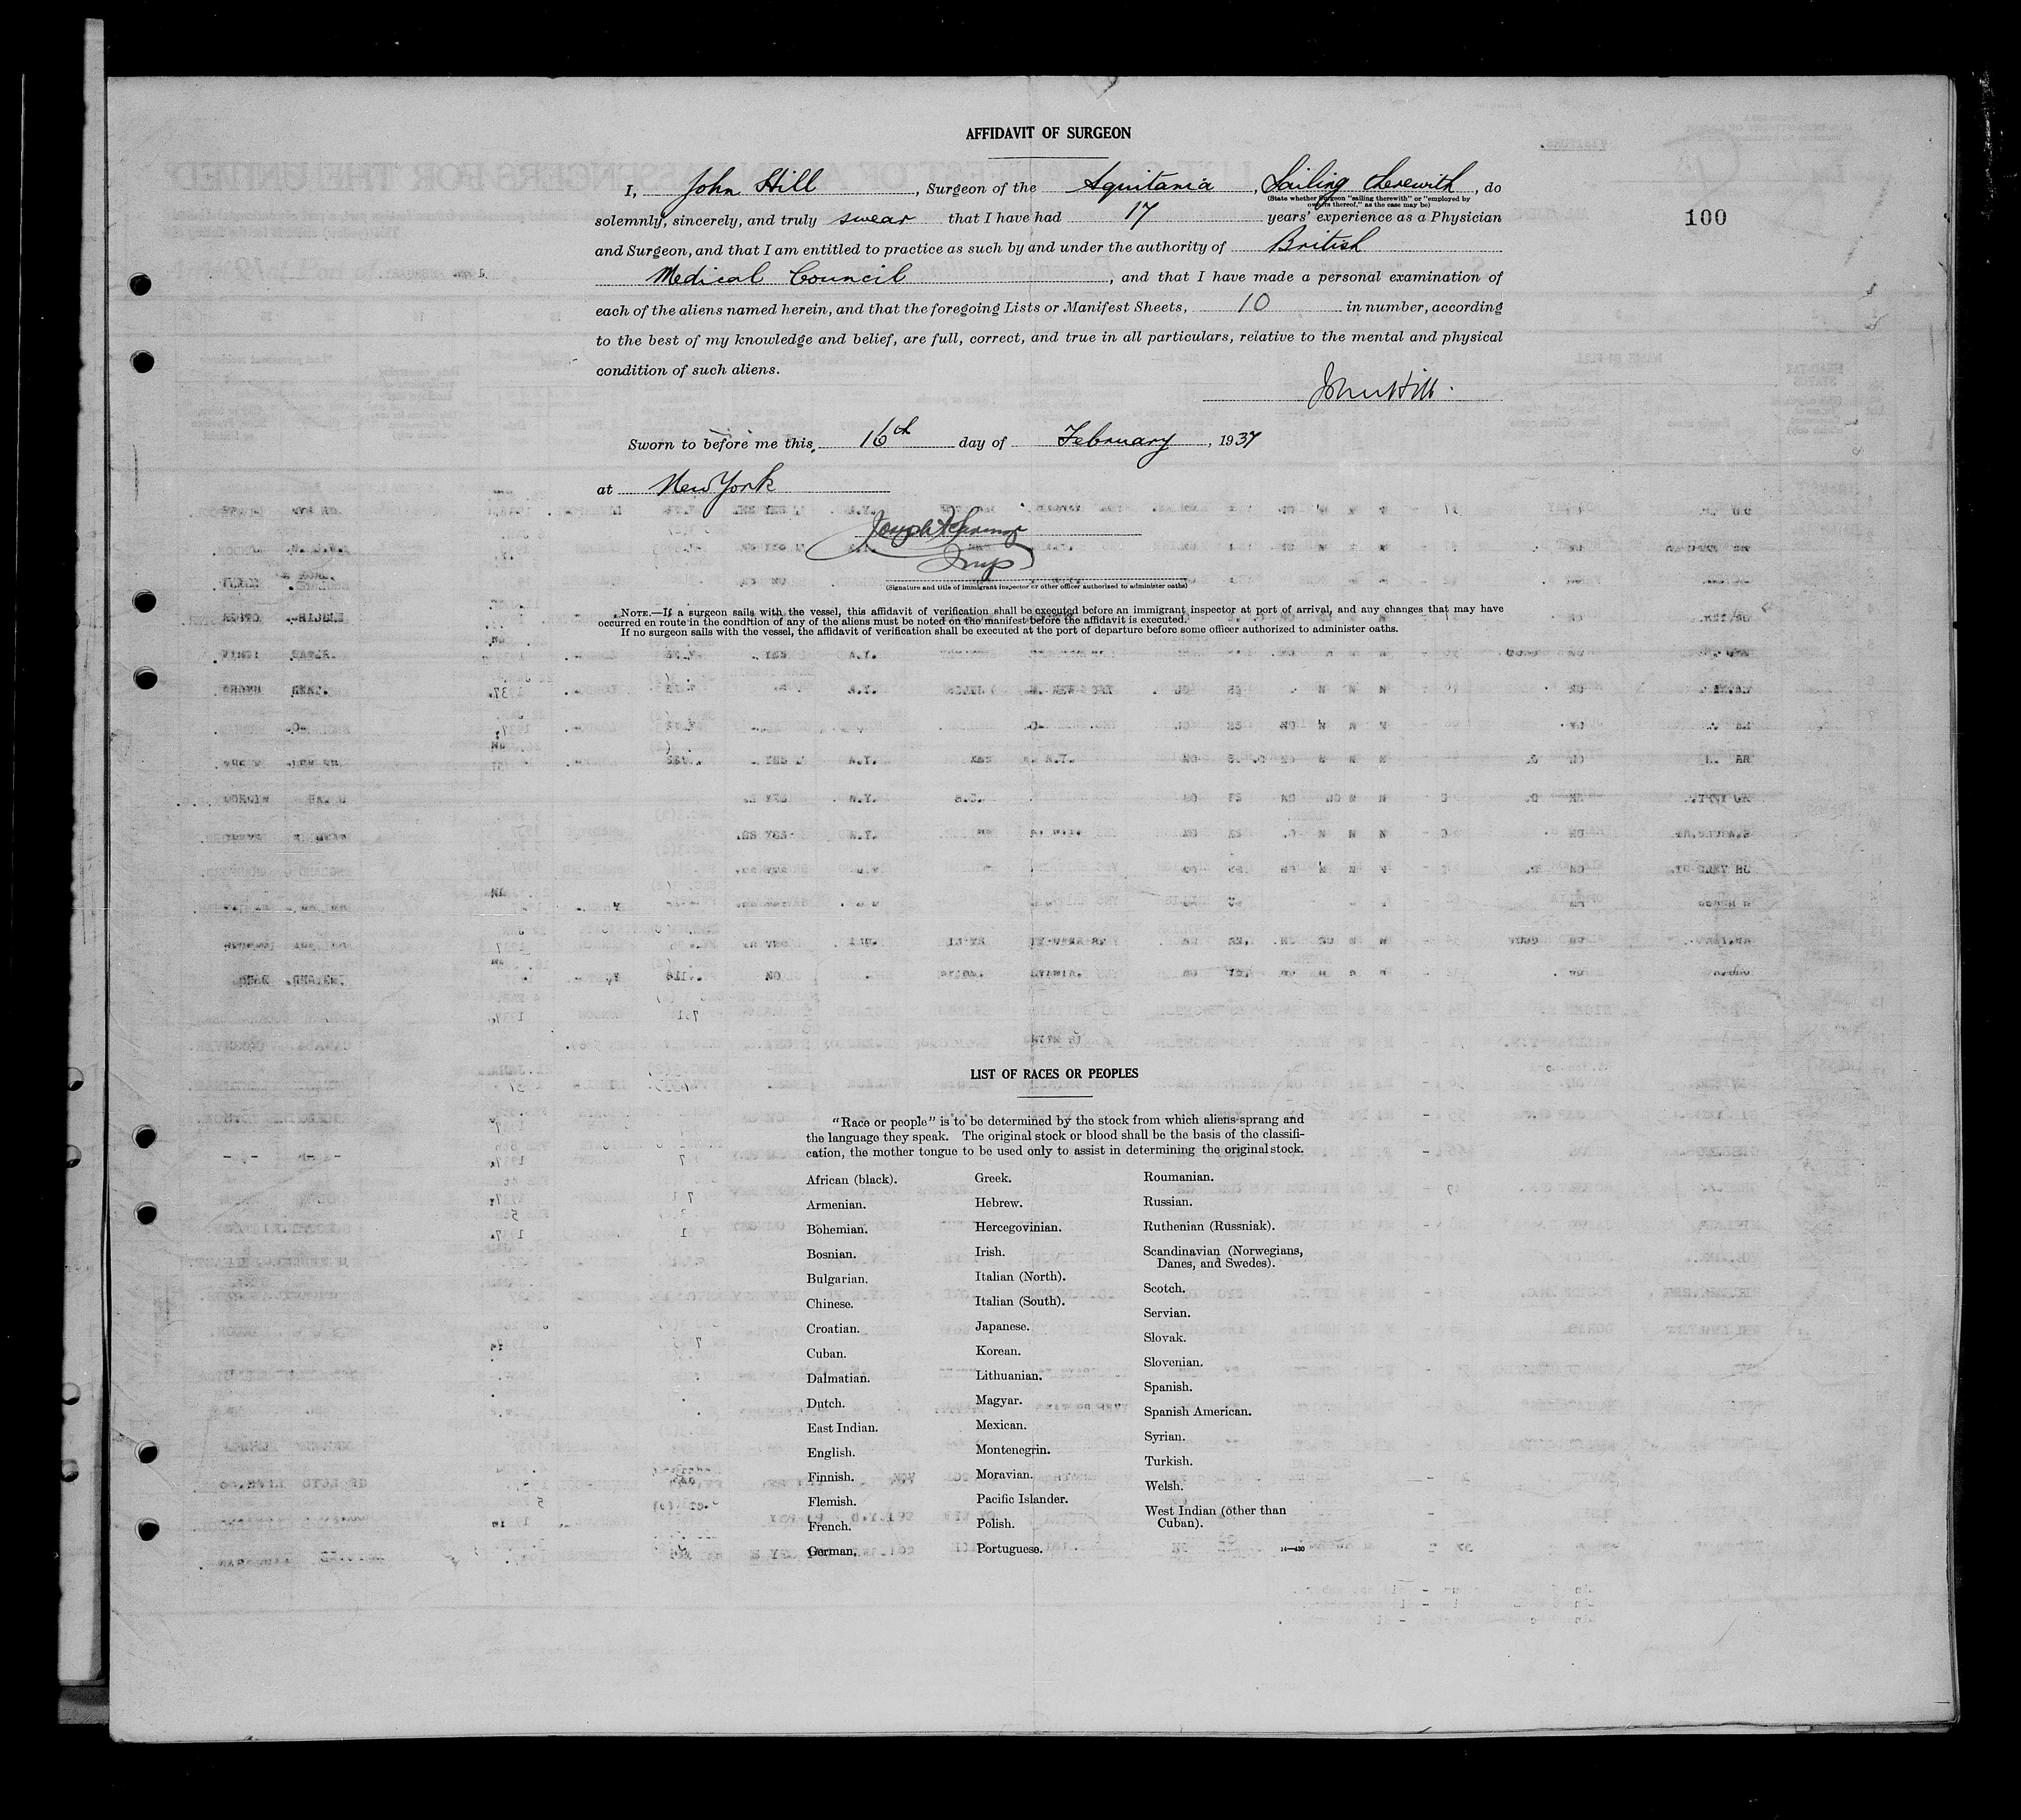 AFFIDAVIT OF SURGEON
I, John Hill, Surgeon of the Aquitania, Sailing therewith, do
(State whether Surgeon "sailing therewith" or "employed by
owners thereof," as the case may be)
100
solemnly, sincerely, and truly swear that I have had 17 years' experience as a Physician
and Surgeon, and that I am entitled to practice as such by and under the authority of British
Medical Council, and that I have made a personal examination of
each of the aliens named herein, and that the foregoing Lists or Manifest Sheets, 10 in number, according
to the best of my knowledge and belief, are full, correct, and true in all particulars, relative to the mental and physical
condition of such aliens.
John Hill.
Sworn to before me this 16th day of February, 1937
at New York
Joseph
Insp
(Signature and title of immigrant inspector or other officer authorized to administer oaths)
NOTE.—If a surgeon sails with the vessel, this affidavit of verification shall be executed before an immigrant inspector at port of arrival, and any changes that may have
occurred en route in the condition of any of the aliens must be noted on the manifest before the affidavit is executed.
If no surgeon sails with the vessel, the affidavit of verification shall be executed at the port of departure before some officer authorized to administer oaths.
LIST OF RACES OR PEOPLES
"Race or people" is to be determined by the stock from which aliens sprang and
the language they speak. The original stock or blood shall be the basis of the classifi-
cation, the mother tongue to be used only to assist in determining the original stock.
African (black).
Armenian.
Bohemian.
Bosnian.
Bulgarian.
Chinese.
Croatian.
Cuban.
Dalmatian.
Dutch.
East Indian.
English.
Finnish.
Flemish.
French.
German.
Greek.
Hebrew.
Hercegovinian.
Irish.
Italian (North).
Italian (South).
Japanese.
Korean.
Lithuanian.
Magyar.
Mexican.
Montenegrin.
Moravian.
Pacific Islander.
Polish.
Portuguese.
Roumanian.
Russian.
Ruthenian (Russniak).
Scandinavian (Norwegians,
Danes, and Swedes).
Scotch.
Servian.
Slovak.
Slovenian.
Spanish.
Spanish American.
Syrian.
Turkish.
Welsh.
West Indian (other than
Cuban).
14—430